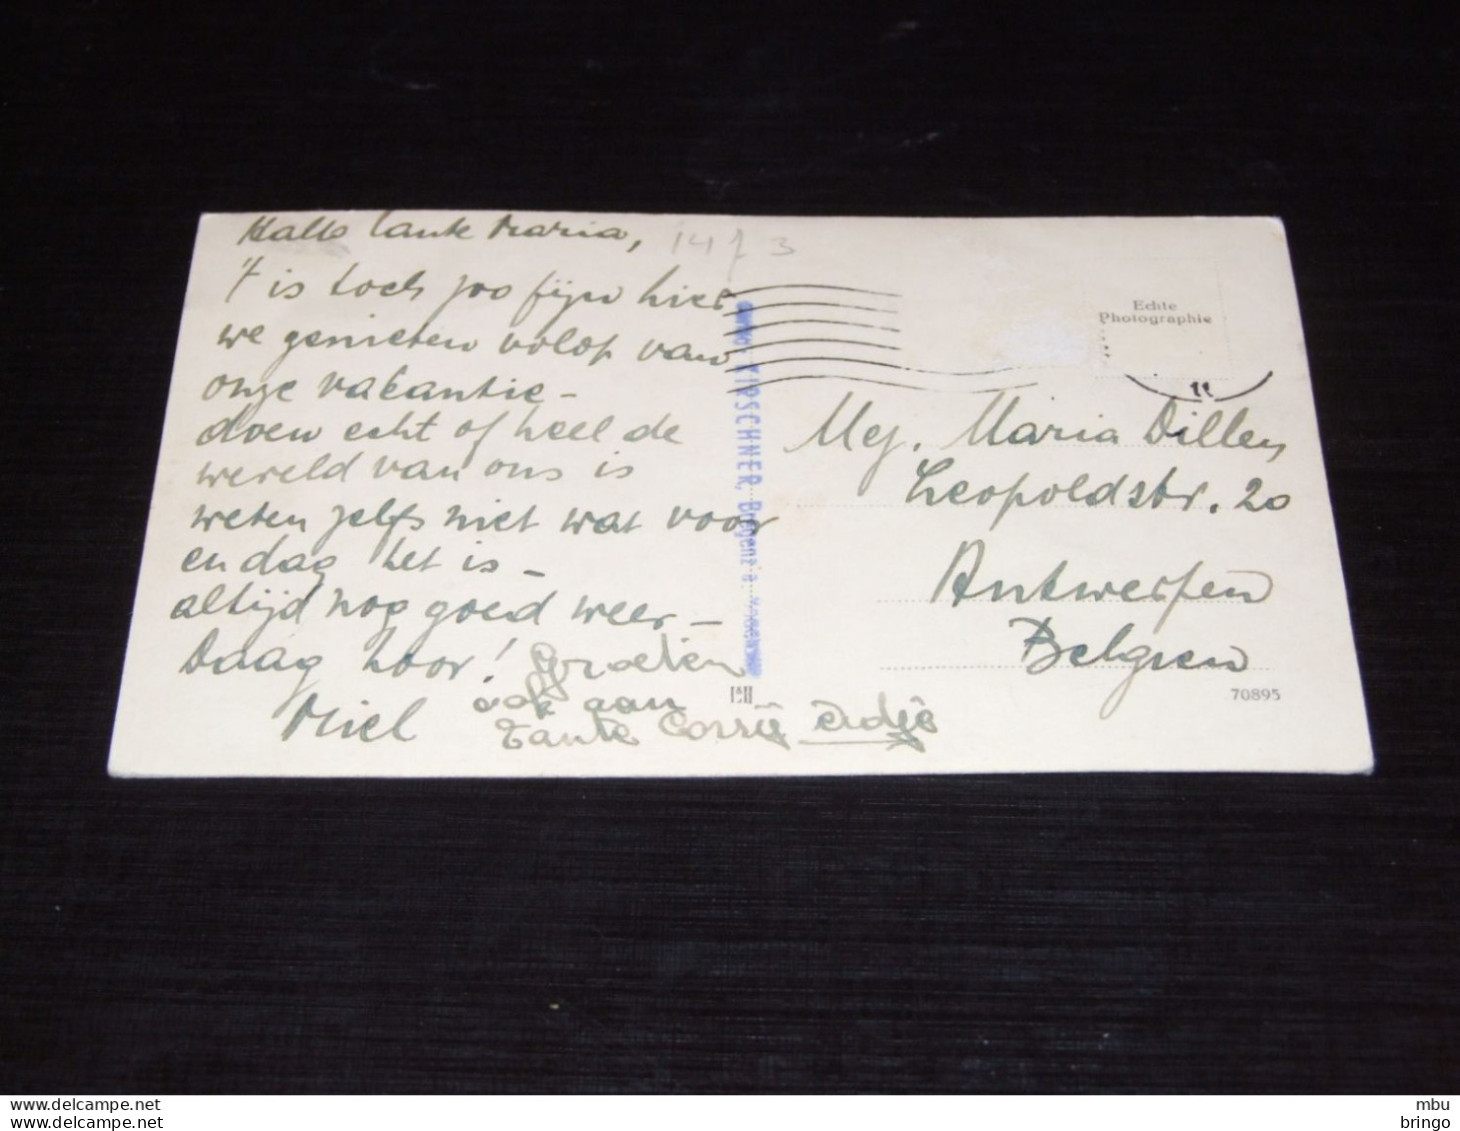 Hallo Tante Maria,
't is toch zoo fijn hier
we genieten volop van
onze vakantie -
doen echt of heel de
wereld van ons is
weten zelfs niet wat voor
en dag het is -
altijd nog goed weer -
Daag hoor! Groeten
Miel ook aan
Tante Corrie
14 3
KIRSCHNER, Bregenz a.
Echte
Photographie
Mej. Maria Dillen
Leopoldstr. 20
Antwerpen
Belgien
70895
www.delcampe.net
mbu
bringo